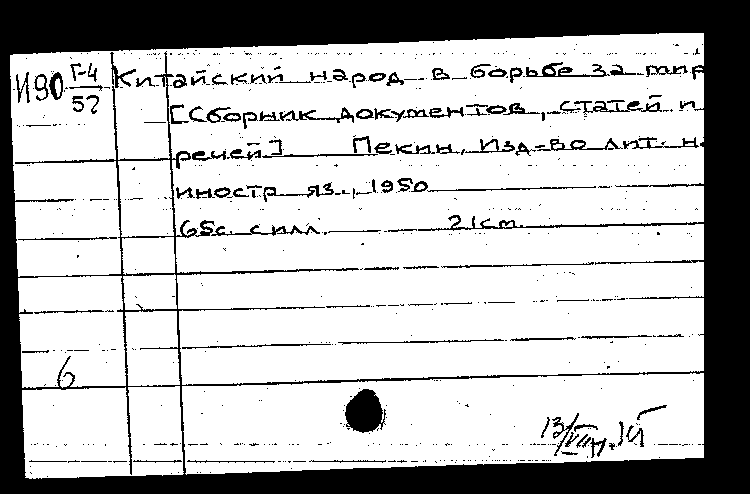 И90 Г-4 Китайский народ в борьбе за мир
52 [Сборник документов, статей и
речей] Пекин, Изд-во лит. на
иностр яз., 1950
65с. с илл. 21см.
6
13/VIII